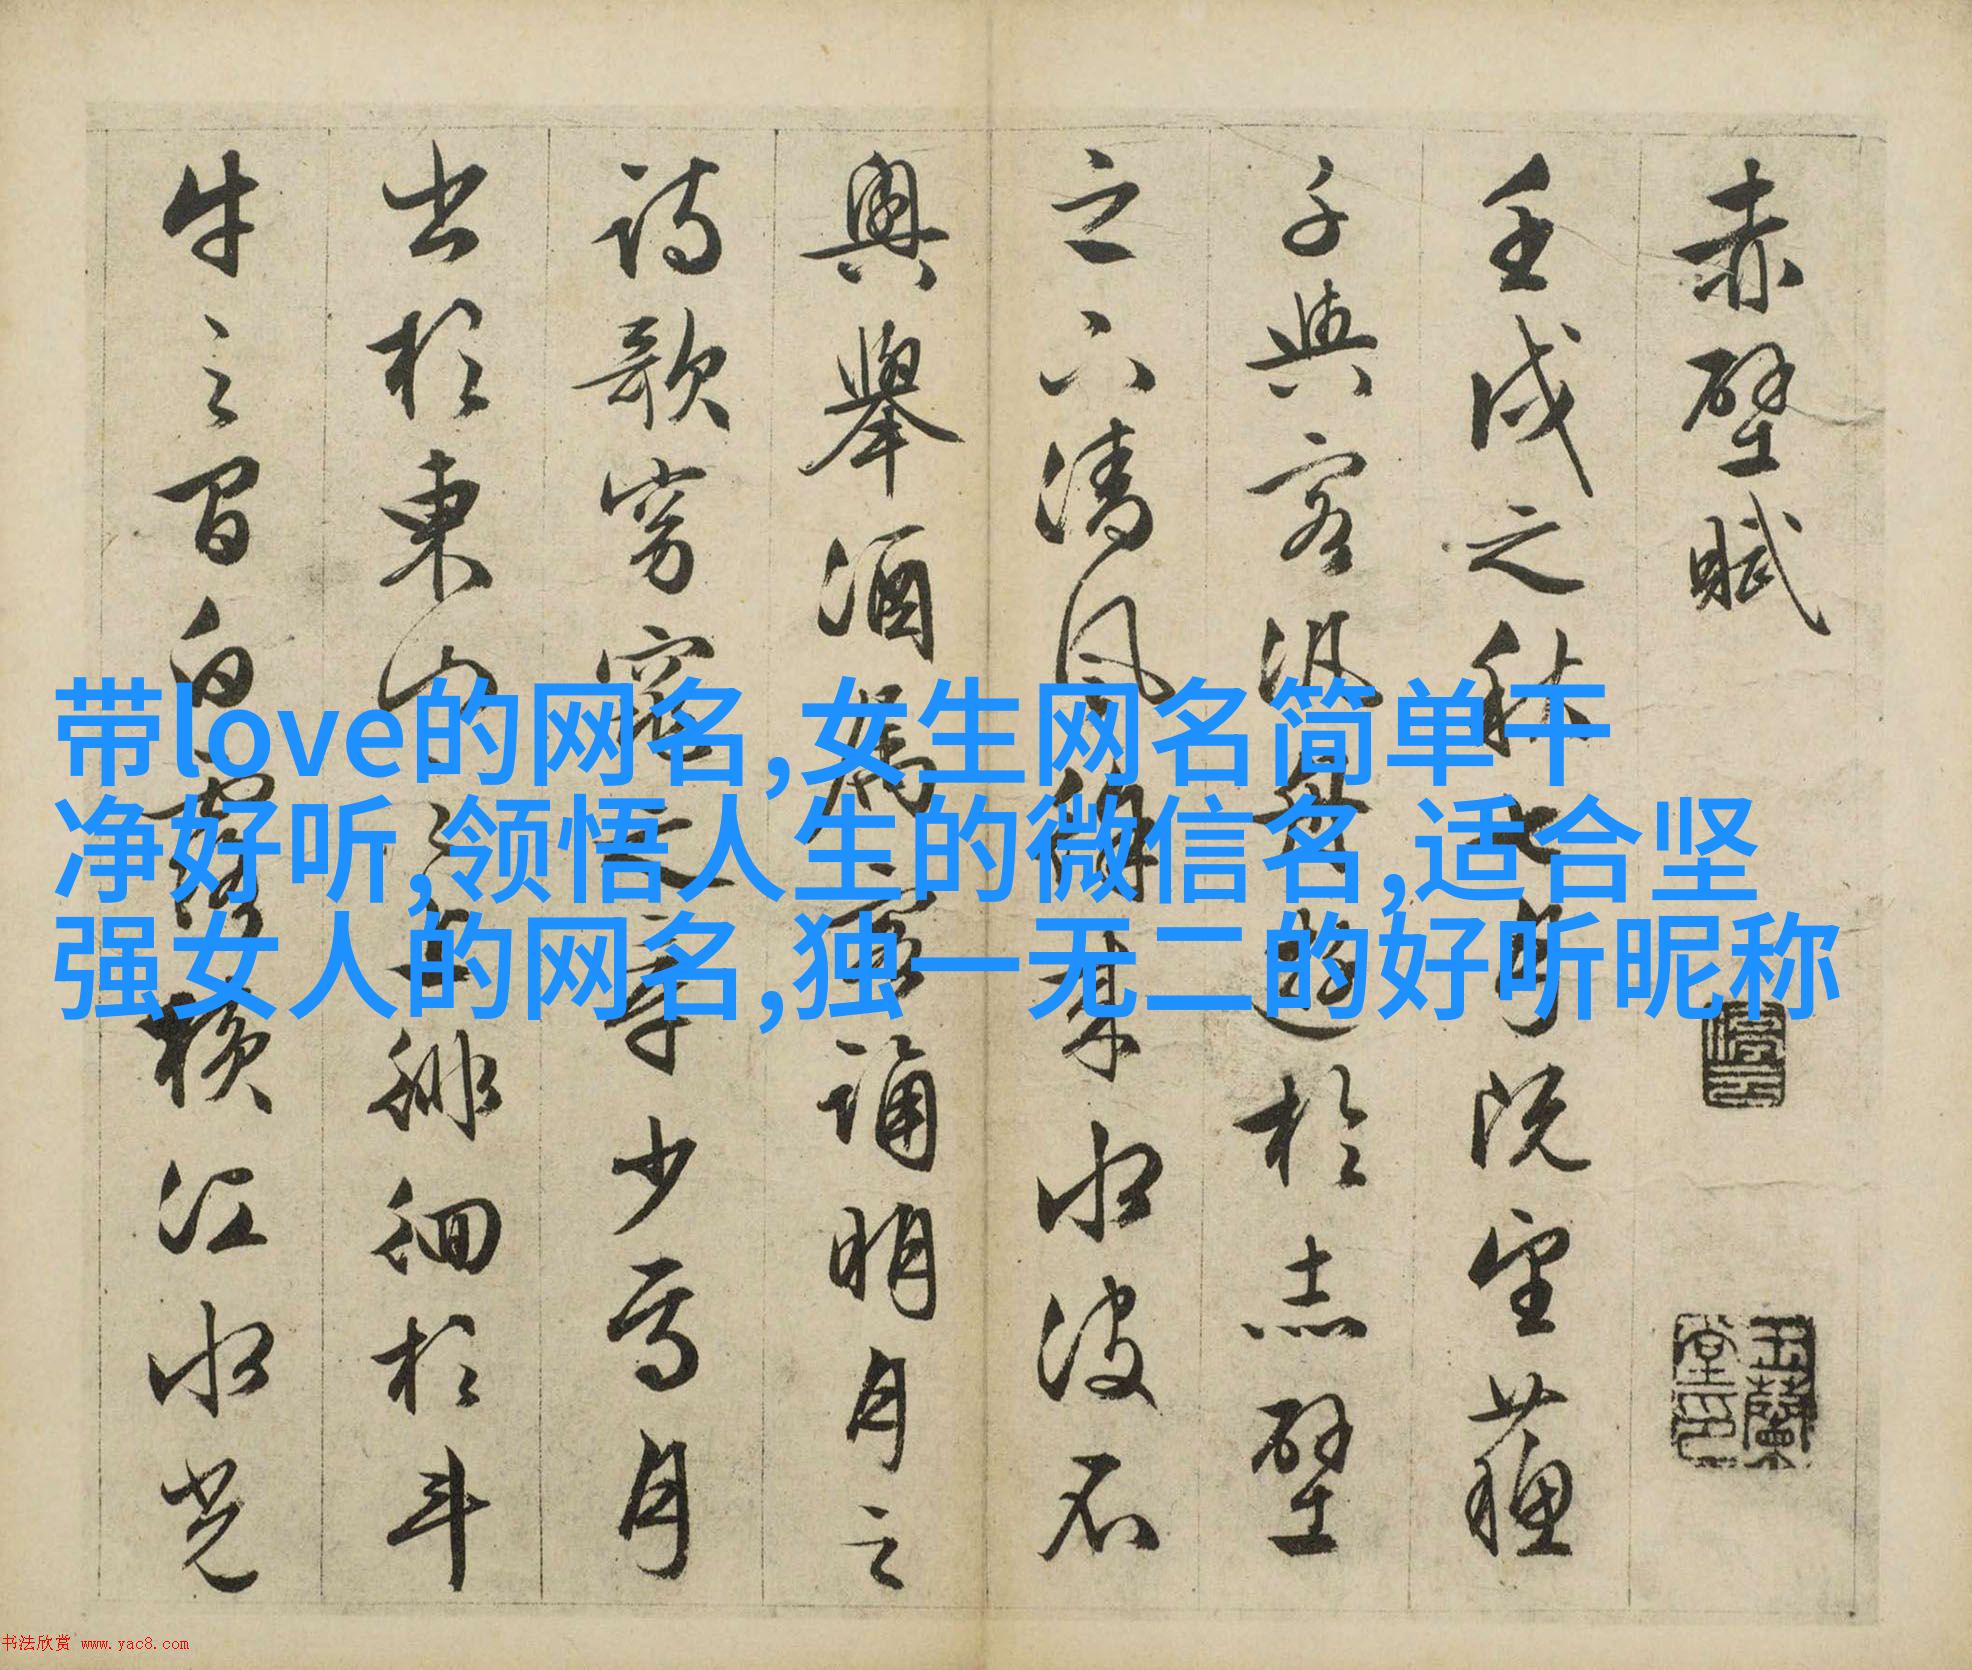 赤壁賦
壬戌之秋七月既望蘇
子與客汎舟遊於赤壁
之下清風徐來水波不
興舉酒屬客誦明月之
詩歌窈窕之章少焉月
出於東山之上徘徊於斗
牛之間白露橫江水光
带love的网名,女生网名简单干
净好听,领悟人生的微信名,适合坚
强女人的网名,独一无二的好听昵称
停雲
玉蘭堂印
书法欣赏 www.yac8.com